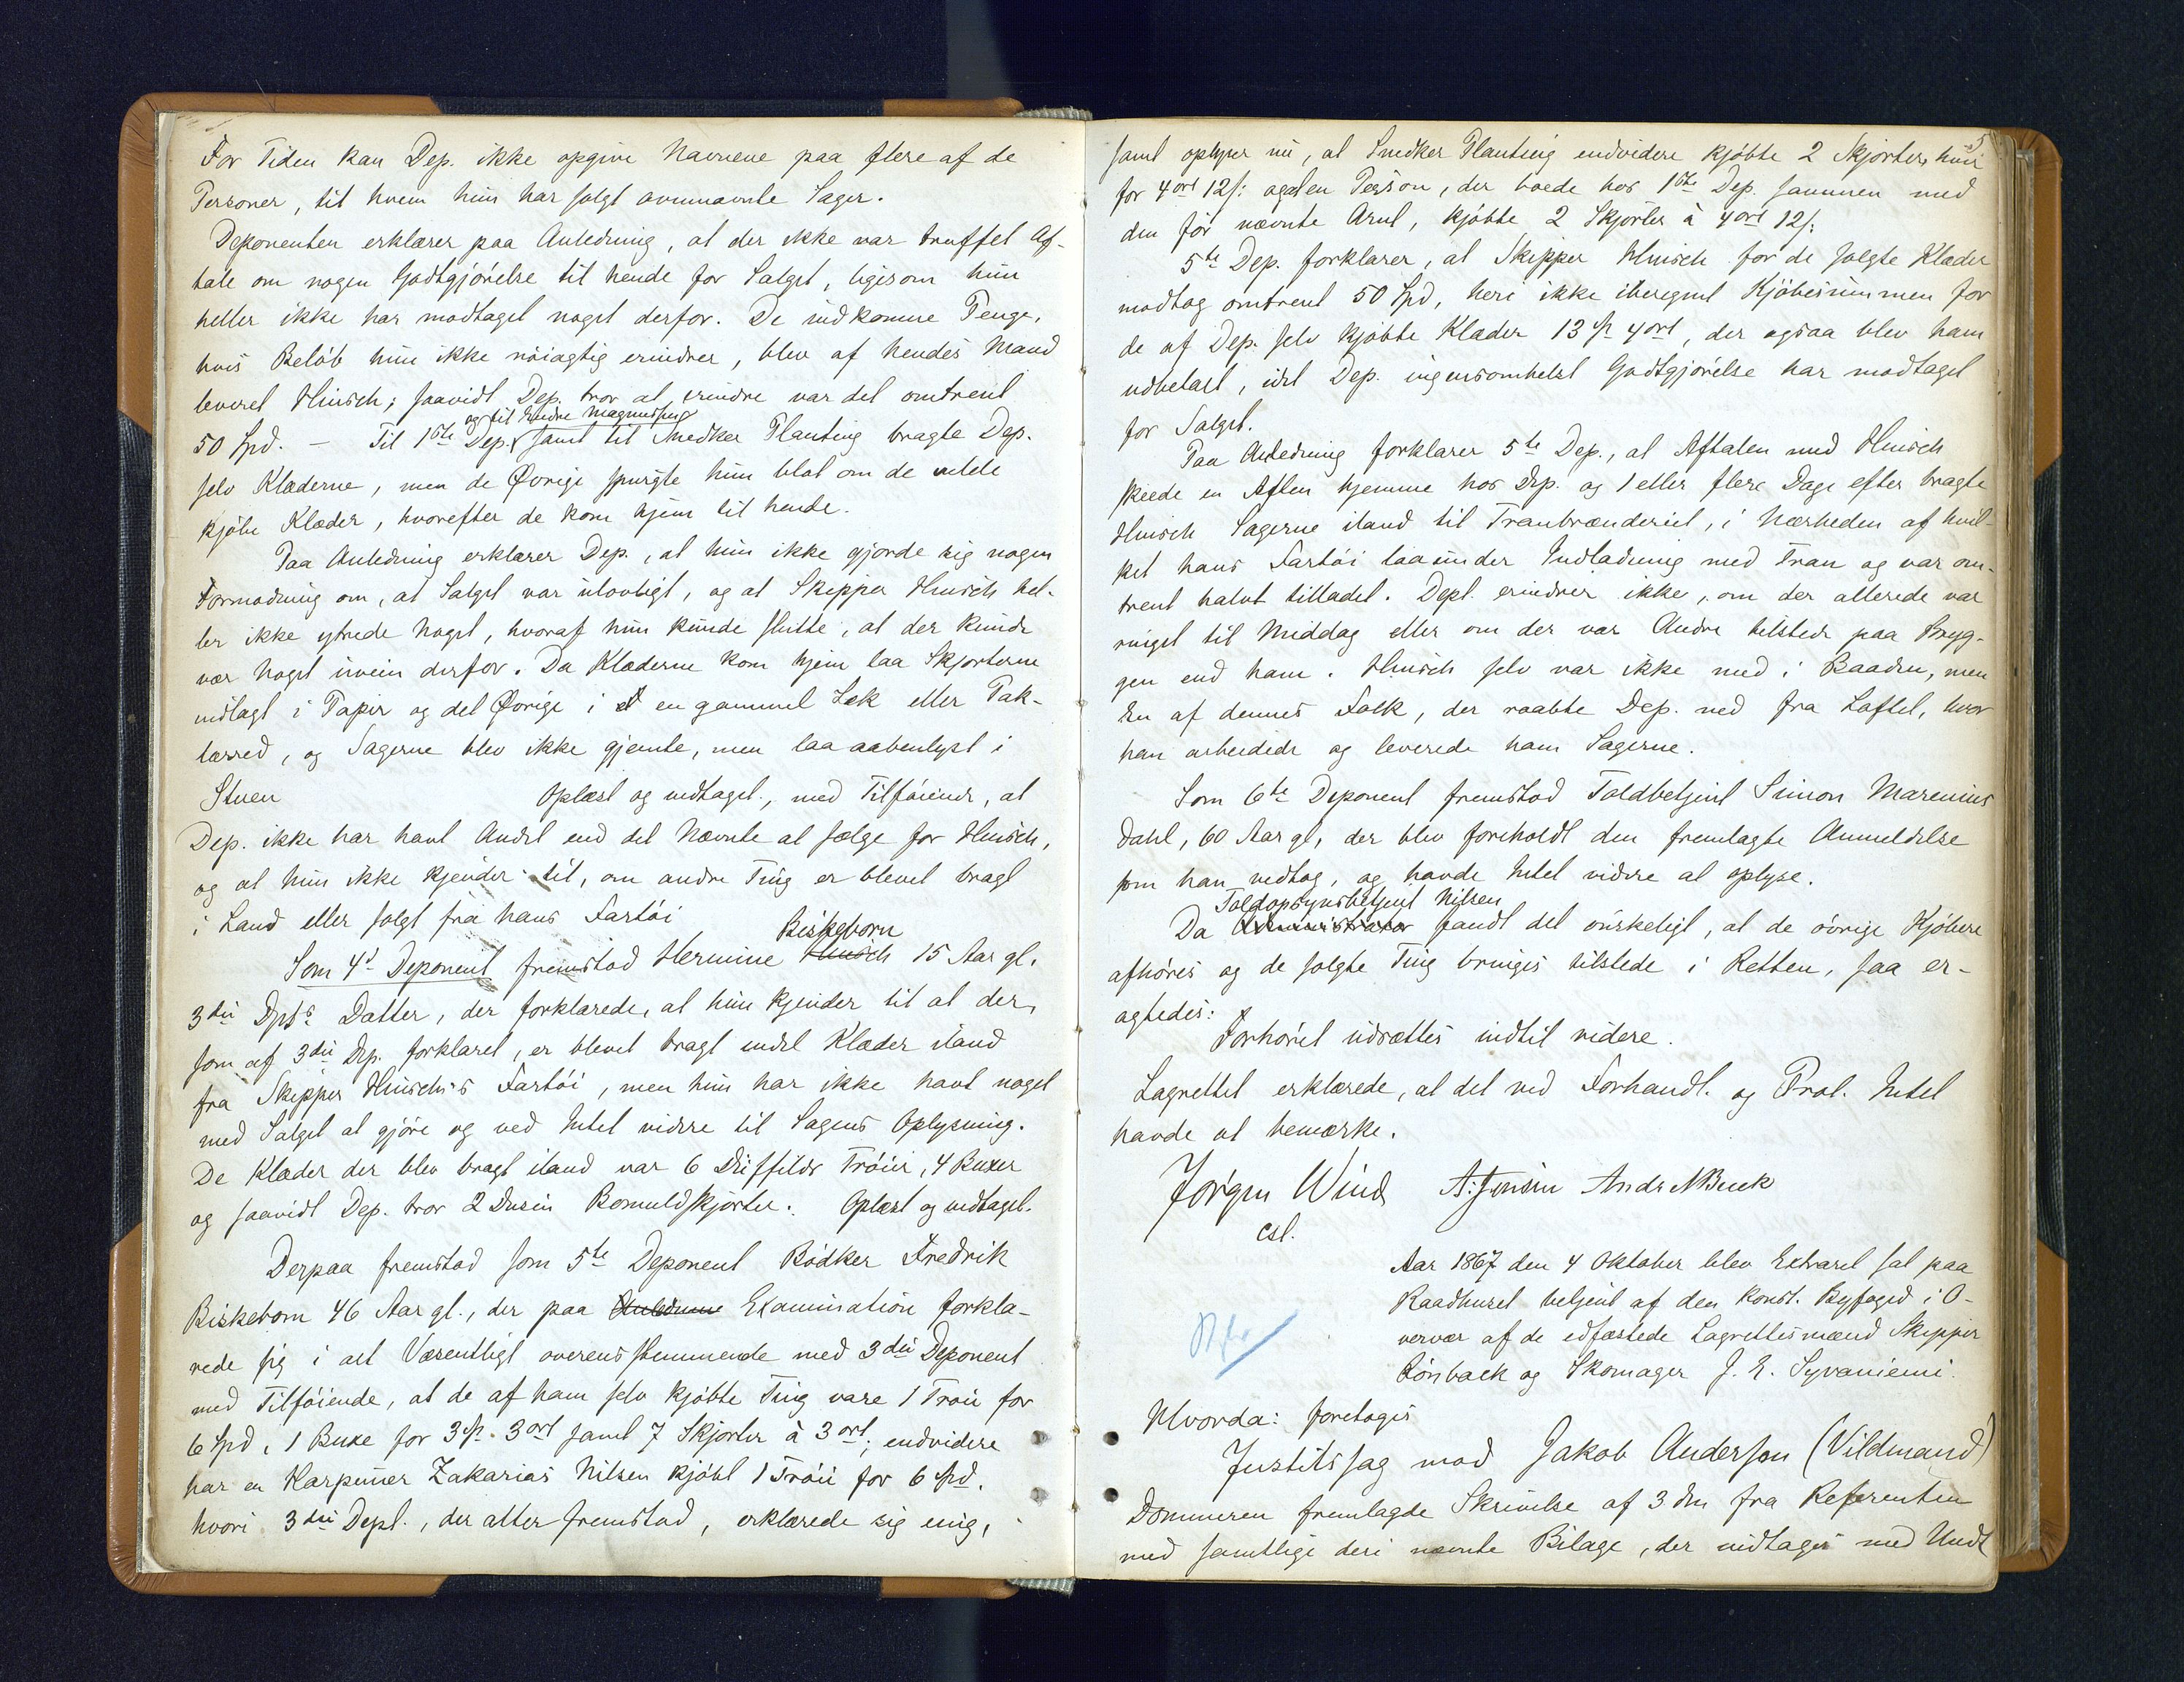 For Tiden kan Dep. ikke opgive Navnene paa flere af de
Personer, til hvem hun har solgt ovennævnte Sager.
Deponenten erklærer paa Anledning, at der ikke var truffet Af-
tale om nogen Godtgjörelse til hende for Salget, ligesom hun
heller ikke har modtaget noget derfor. De indkomne Penge,
hvis Belöb hun ikke nöiagtig erindrer, blev af hendes Mand
leveret Hinsch; saavidt Dep. tror at erindre var det omtrent
og til Endre Magnussen
50 Spd. – Til 1ste Dep. samt til Snedker Planting bragte Dep.
selv Klæderne, men de Øvrige spurgte hun blot om de vilde
kjöbe Klæder, hvorefter de kom hjem til hende.
Paa Anledning erklærer Dep., at hun ikke gjorde sig nogen
Formodning om, at Salget var ulovligt, og at Skipper Hinsch hel-
ler ikke ytrede Noget, hvoraf hun kunde slutte, at der kunde
vær Noget iveien derfor. Da Klæderne kom hjem laa Skjorterne
indlagt i Papir og det Øvrige i et en gammel Sæk eller Pak-
lærred, og Sagerne blev ikke gjemte, men laa aabenlyst i
Stuen Oplæst og vedtaget, med Tilföiende, at
Dep. ikke har havt Andet end det Nævnte at sælge for Hinsch,
og at hun ikke kjender til, om andre Ting er blevet bragt
i Land eller solgt fra hans Fartöi
Biskeborn
Som 4d Deponent fremstod Hermine Hinsch 15 Aar gl.
3die Dpts Datter, der forklarede, at hun kjender til at der,
som af 3die Dep. forklaret, er blevet bragt endel Klæder iland
fra Skipper Hinsch's Fartöi, men hun har ikke havt noget
med Salget at gjöre og ved Intet vidre til Sagens Oplysning.
De Klæder der blev bragt iland var 6 Düffelds Tröier, 4 Buxer
og saavidt Dep. tror 2 Dusin Bomuldskjorter. Oplæst og vedtaget.
Derpaa fremstod som 5te Deponent Bödker Fredrik
Biskeborn 46 Aar gl., der paa Anledning Examination forkla-
rede sig i alt Væsentligt overensstemmende med 3die Deponent
med Tilföiende, at de af ham selv kjöbte Ting vare 1 Tröie for
6 Spd, 1 Buxe for 3 Sp. 3 ort samt 7 Skjorter à 3 ort; endvidere
har en Karpener Zakarias Nilsen kjöbt 1 Tröie for 6 Spd.
hvori 3die Dept., der atter fremstod, erklærede sig enig,
5
samt oplyser nu, at Snedker Planting endvidere kjöbte 2 Skjorter, hver
for 4 ort 12 s: og at en Person, der boede hos 1ste Dep. sammen med
den för nævnte Arnt, kjöbte 2 Skjorter à 4 ort 12 s.
5te Dep. forklarer, at Skipper Hinsch for de solgte Klæder
modtog omtrent 50 Spd, heri ikke iberegnet Kjöbesummen for
de af Dep. selv kjöbte Klæder 13 Sp 4 ort, der ogsaa blev ham
udbetalt, idet Dep. ingensomhelst Godtgjörelse har modtaget
for Salget.
Paa Anledning forklarer 5te Dep., at Aftalen med Hinsch
skeede en Aften hjemme hos Dep. og 1 eller flere Dage efter bragte
Hinsch Sagerne iland til Tranbrænderiet, i Nærheden af hvil-
ket hans Fartöi laa under Indladning med Tran og var om-
trent halvt tilladet. Dept. erindrer ikke, om der allerede var
ringet til Middag eller om der var Andre tilstede paa Bryg-
gen end ham. Hinsch selv var ikke med i Baaden, men
En af dennes Folk, der raabte Dep. ned fra Loftet, hvor
han arbeidede og leverede ham Sagerne.
Som 6te Deponent fremstod Toldbetjent Simon Marenius
Dahl, 60 Aar gl, der blev foreholdt den fremlagte Anmeldelse
som han vedtog, og havde Intet vidre at oplyse.
Toldopsynsbetjent Nilsen
Da Administrator fandt det önskeligt, at de övrige Kjöbere
afhöres og de solgte Ting bringes tilstede i Retten, saa er-
agtedes:
Forhöret udsættes indtil videre.
Lagrettet erklærede, at det ved Forhandl. og Prot. Intet
havde at bemærke.
Jörgen Wind A: Jensen Andr NBeck
cst.
Aar 1867 den 4 Oktober blev Extraret sat paa
Raadhuset betjent af den konst. Byfoged i O-
vervær af de edfæstede Lagrettesmænd Skipper
Lönback og Skomager J. E. Syvaniemi.
Hvorda: foretoges
Justitssag mod Jakob Anderssen (Vildmand)
Dommeren fremlagde Skrivelse af 3 dm fra Referenten
med samtlige deri nævnte Bilage, der indtages med Undt